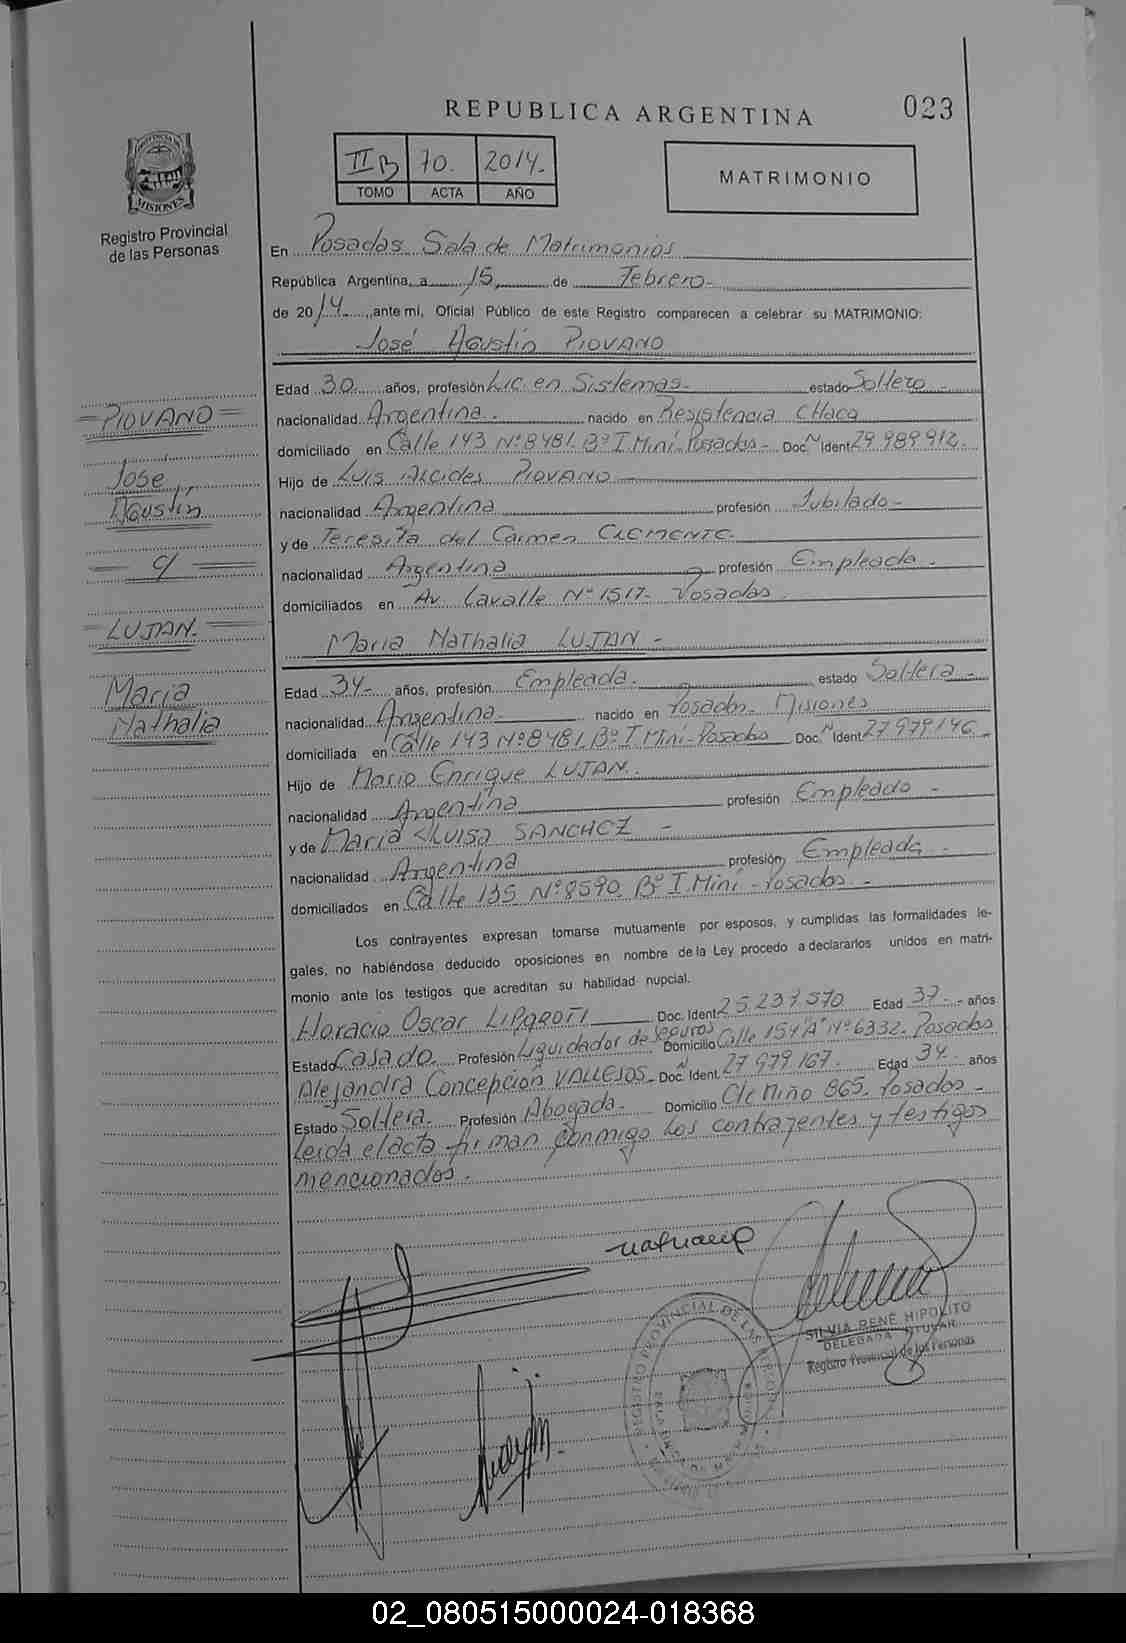 REPUBLICA ARGENTINA 023
PROVINCIA DE
MISIONES
Registro Provincial
de las Personas
II B 70. 2014.
TOMO ACTA AÑO
MATRIMONIO
En Posadas Sala de Matrimonios
República Argentina, a 15, de Febrero-
de 2014, ante mí, Oficial Público de este Registro comparecen a celebrar su MATRIMONIO:
José Agustín PIOVANO
Edad 30 años, profesión Lic. en Sistemas- estado Soltero-
nacionalidad Argentina. nacido en Resistencia CHaco
domiciliado en Calle 143 Nº 8481. Bº I. Miní-Posadas- Doc. Ident 29.989.912.
Hijo de Luis Alcides PIOVANO-
nacionalidad Argentina profesión Jubilado-
y de Teresita del Carmen CLEMENTE.
nacionalidad Argentina profesión Empleada.
domiciliados en Av. Lavalle Nº 1517- Posadas.
Maria Nathalia LUJAN-
Edad 34- años, profesión Empleada. estado Soltera-
nacionalidad Argentina. nacido en Posadas- Misiones
domiciliada en Calle 143 Nº 8481. Bº I. Miní-Posadas Doc. Ident 27.979.146.
Hijo de Mario Enrique LUJAN.
nacionalidad Argentina profesión Empleado-
y de Maria Luisa SANCHEZ-
nacionalidad Argentina profesión Empleada
domiciliados en Calle 135 Nº 8590. Bº I. Miní-Posadas-
Los contrayentes expresan tomarse mutuamente por esposos, y cumplidas las formalidades le-
gales, no habiéndose deducido oposiciones en nombre de la Ley procedo a declararlos unidos en matri-
monio ante los testigos que acreditan su habilidad nupcial.
Horacio Oscar LIPAROTI Doc. Ident 25.237.570 Edad 37.- años
Estado Casado. Profesión Liquidador de Seguros Domicilio Calle 154"A" Nº 6332. Posadas
Alejandra Concepción VALLEJOS- Doc. Ident. 27.979.167. Edad 34.- años
Estado Soltera. Profesión Abogada- Domicilio Clc Miño 865. Posadas-
Leída el acta firman conmigo los contrayentes y testigos
mencionados.
=PIOVANO=
Jose
Agustín
= c/ =
=LUJAN.=
Maria
Nathalia
SILVIA RENÉ HIPOLITO
DELEGADA TITULAR
Registro Provincial de las Personas
REGISTRO PROVINCIAL DE LAS PERSONAS
02_080515000024-018368